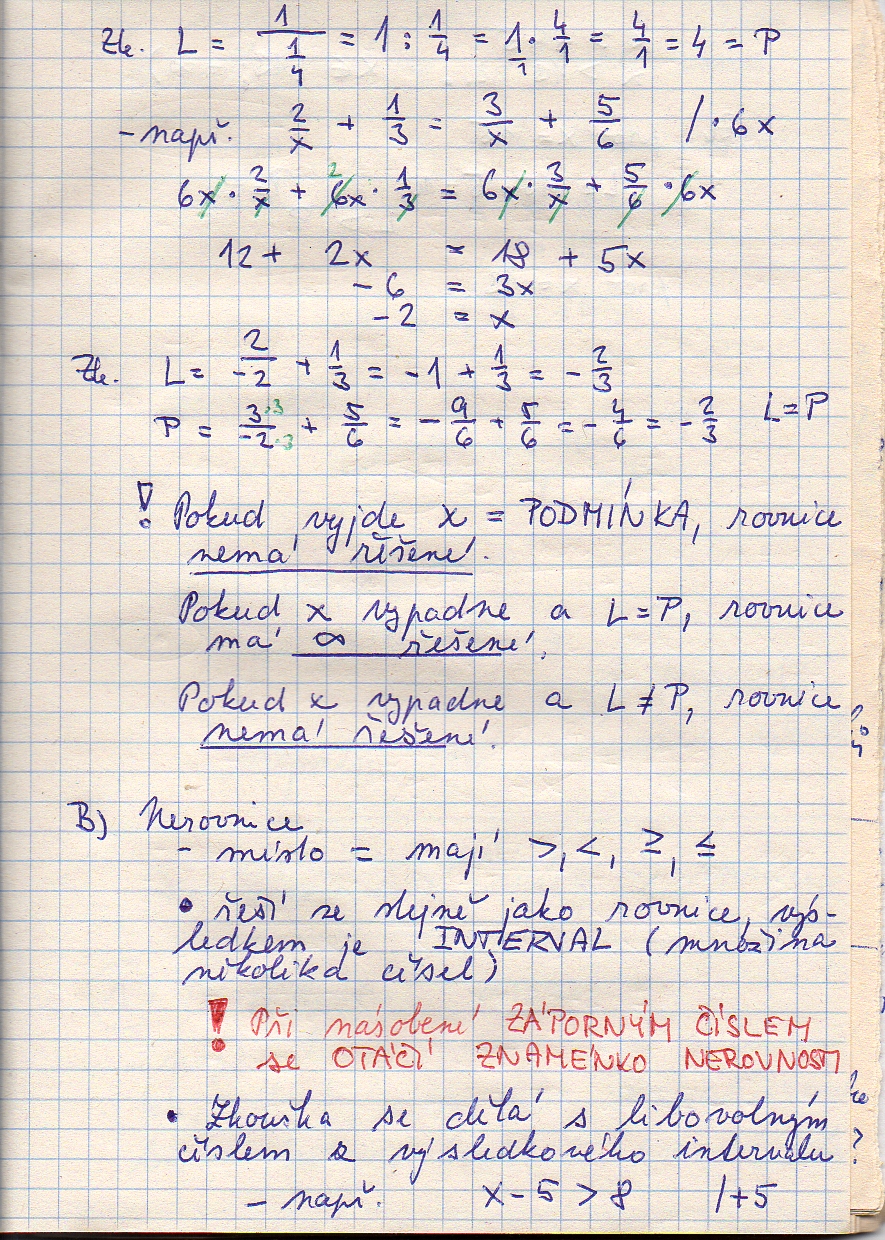 Zk. L = 1/(1/4) = 1 : 1/4 = 1/1 · 4/1 = 4/1 = 4 = P
- např. 2/x + 1/3 = 3/x + 5/6 / · 6x
6x · 2/x + 6x · 1/3 = 6x · 3/x + 5/6 · 6x
2
12 + 2x = 18 + 5x
- 6 = 3x
- 2 = x
Zk. L = 2/-2 + 1/3 = - 1 + 1/3 = - 2/3
P = 3·3/-2·3 + 5/6 = - 9/6 + 5/6 = - 4/6 = - 2/3 L = P
! Pokud vyjde x = PODMÍNKA, rovnice
nemá řešení.
Pokud x vypadne a L = P, rovnice
má ∞ řešení.
Pokud x vypadne a L ≠ P, rovnice
nemá řešení.
B) Nerovnice
- místo = mají >, <, ≥, ≤
• řeší se stejně jako rovnice, výs-
ledkem je INTERVAL (množina
několika čísel)
! Při násobení ZÁPORNÝM ČÍSLEM
se OTÁČÍ ZNAMÉNKO NEROVNOSTI
• Zkouška se dělá s libovolným
číslem z výsledkového intervalu
- např. x - 5 > 8 / +5